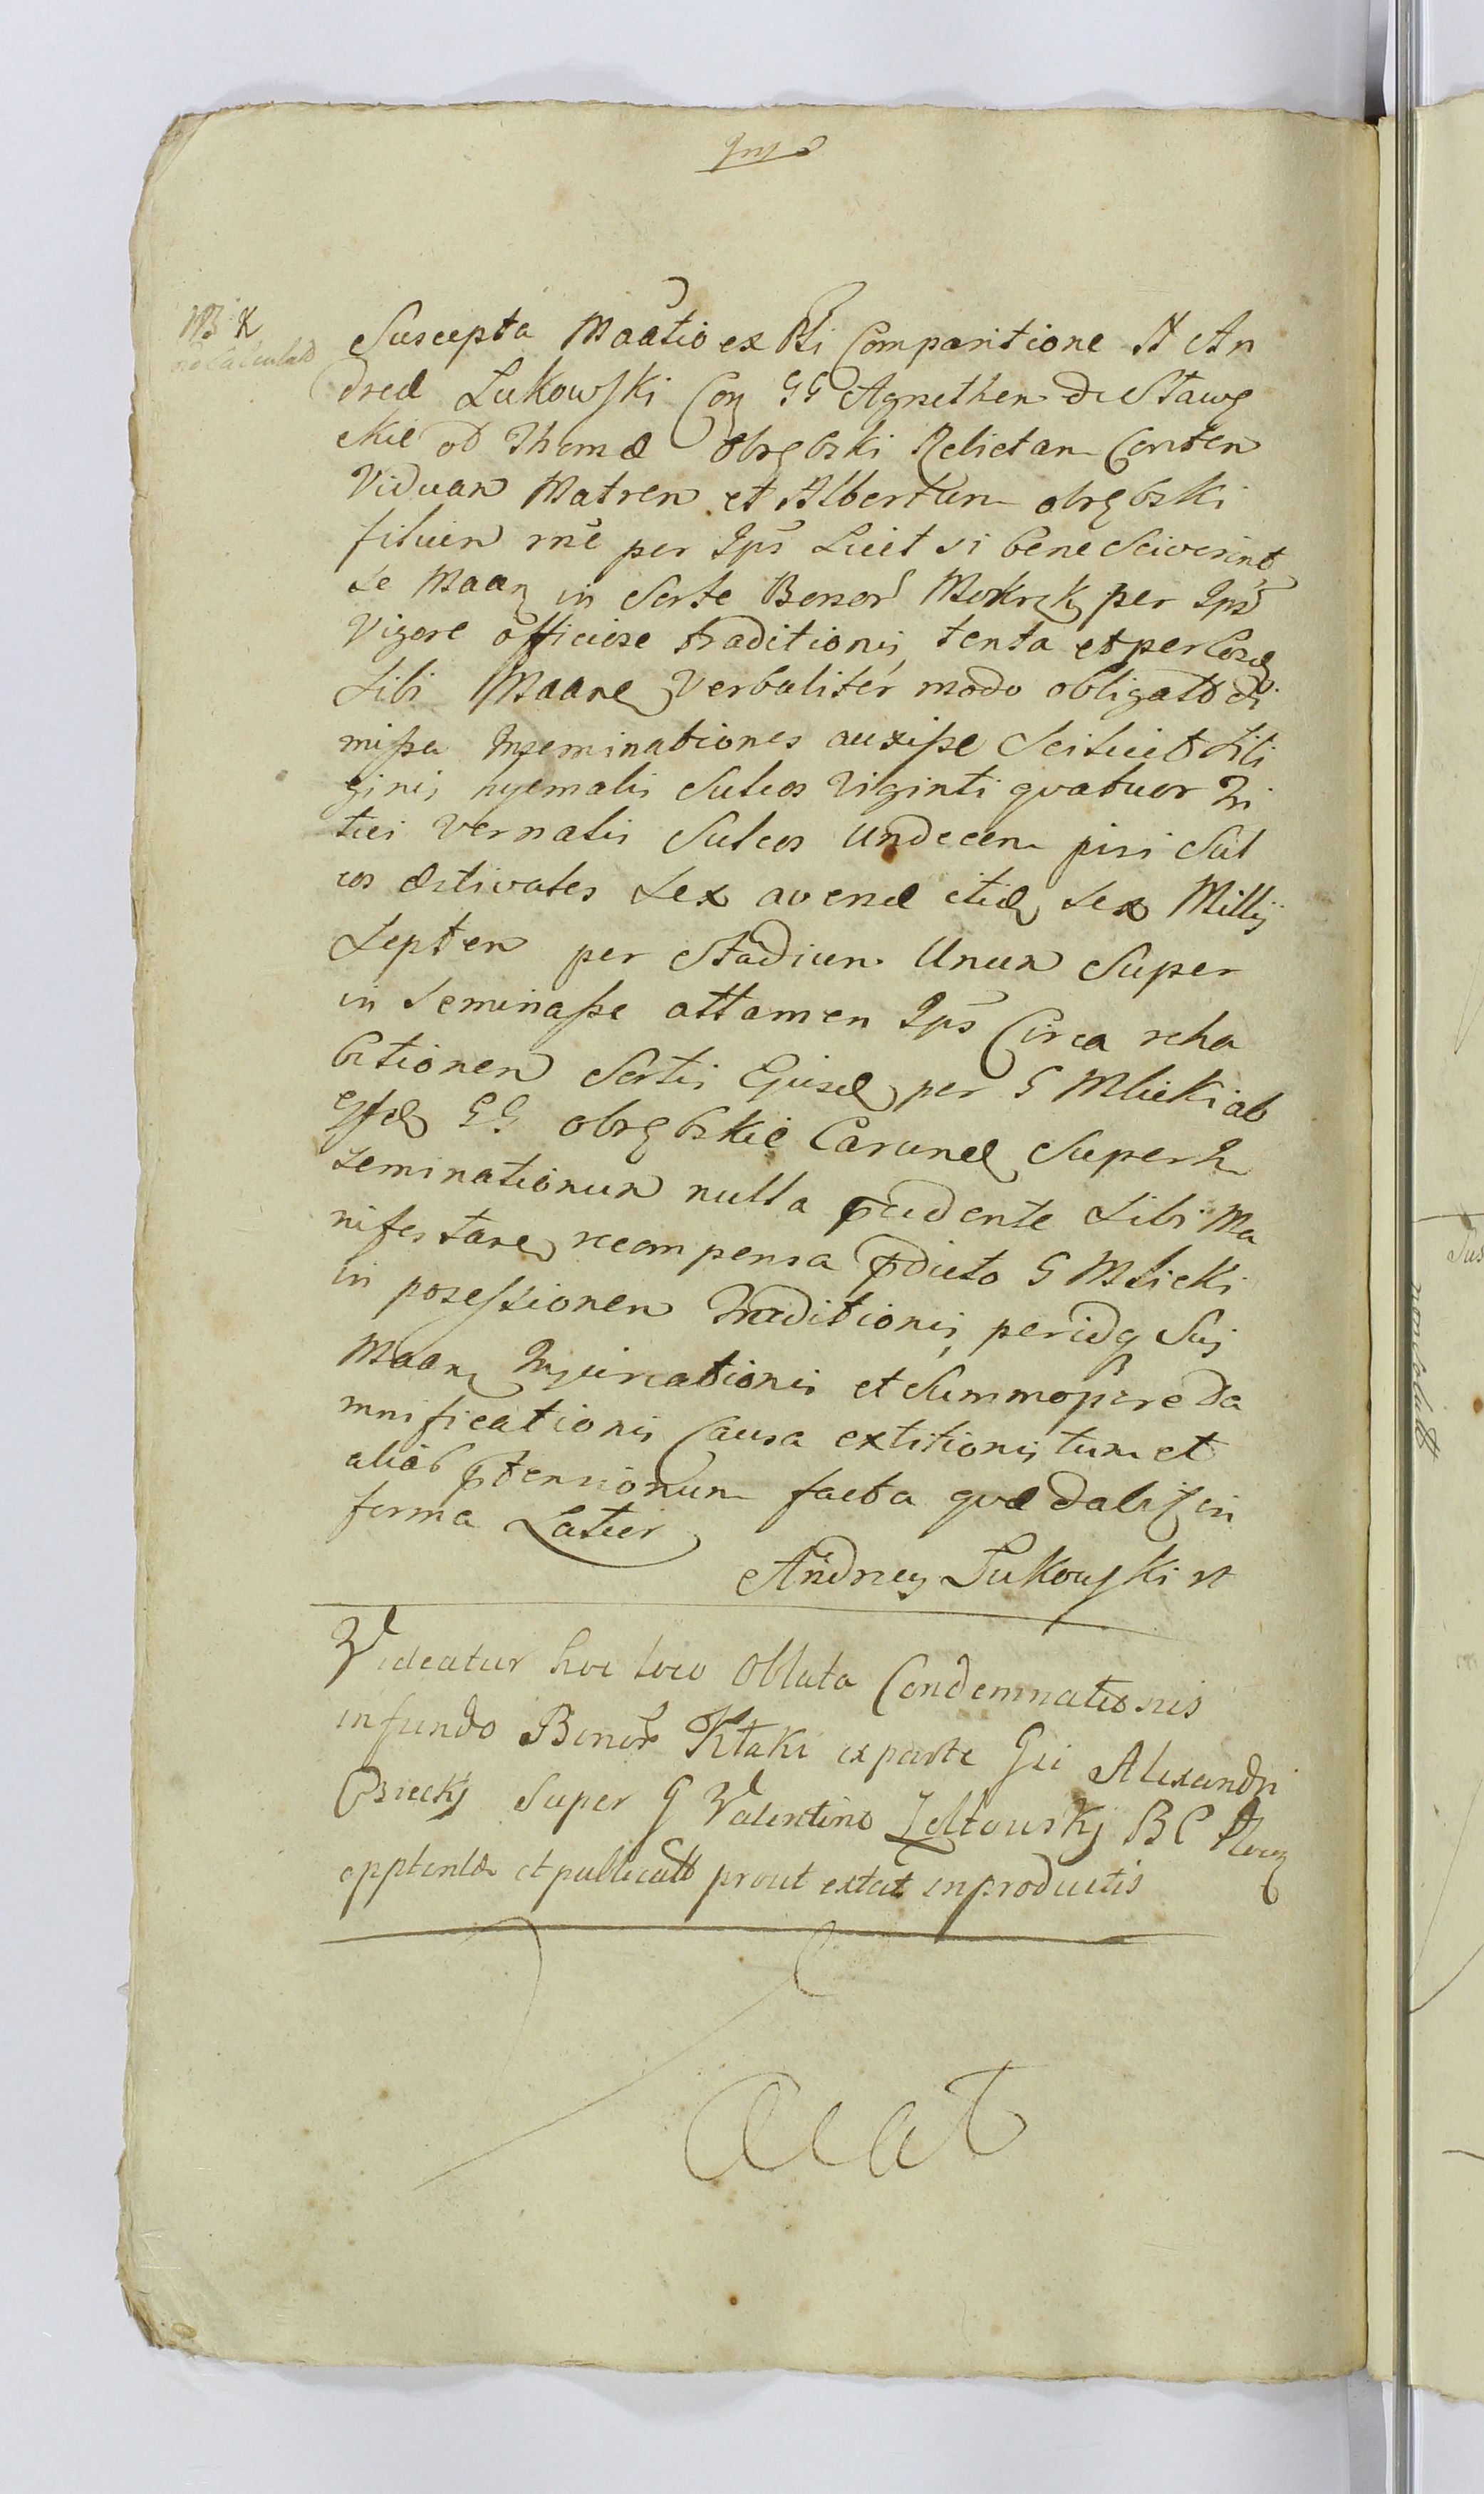 Suscepta Maatio ex Pti Comparitione N An
dreæ Lukowski Con GG Agnethen de Stawę
ckie od Thomæ obrębski Relictam Conten
Viduan Matren et Albertum obrębski
filium rnē per Ips Liiet si bene Sciverint
se Maan in Sorte Bonor Mokrzk per Ips
Vigore officiose traditionis tenta et per
Sibi Maane Verbaliter modo obligatt di
missa Inseminationes auxisse Scilicet Sili
ginis hyemalis Sulcos Viginti qvatuor Tri
tici vernalis Sulcos Undecem pisi Sul
cos æstivales Sex avenæ itid Sex Millij
Septem per Stadium Unum Super
in seminasse attamen Ips Circa reha
bitionem Sortis Ejusd per G Mlicki ab
GG obrębskie Earund Super In
seminationum nulla pcedente Sibi Ma
nifestane recompensa pdicto G Mlicki
in posessionem Traditionis, per idq Sui
Maan Injuriationis et Summopere da
mnificationis Causa extitionis tum et
aliar ptensionum facta qvæ dabit in
forma Latiori
Andrzey Lukowski n
Videatur hoc loco Oblata Condemnationis
in fundo Bonor Ktaki ex parte Gsi Alexandri
Super G Valentino Zołtowskj BC
opptentæ et publicatt prout extat in productis